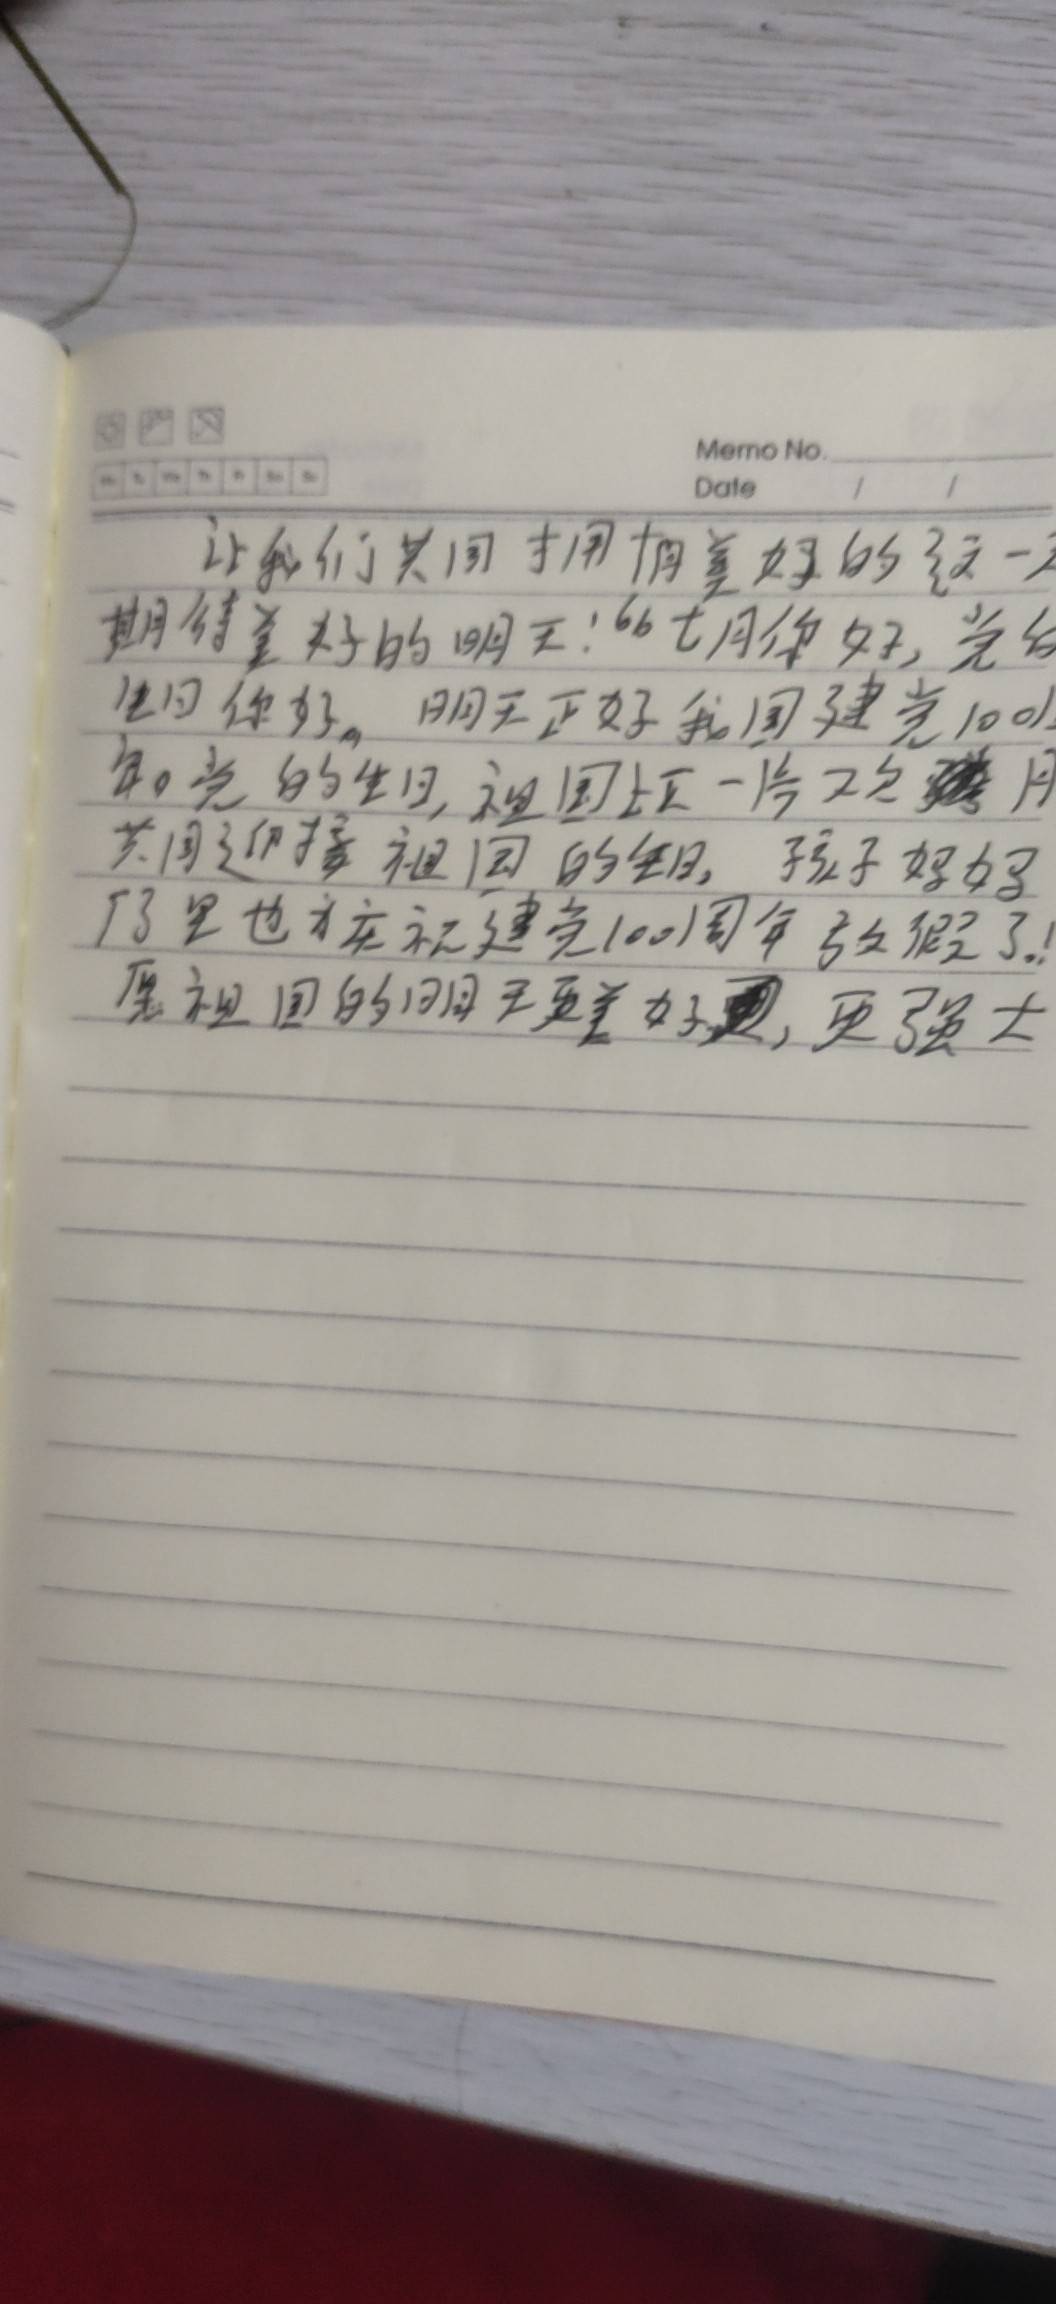 Memo No.
Date / /
让我们共同拥抱美好的这一天
期待美好的明天！“七月你好，党的
生日你好。明天正好我国建党100周
年。党的生日，祖国上下一片欢
共同迎接祖国的生日。孩子好好
厅里也为庆祝建党100周年放假了！
愿祖国的明天更美好，更强大